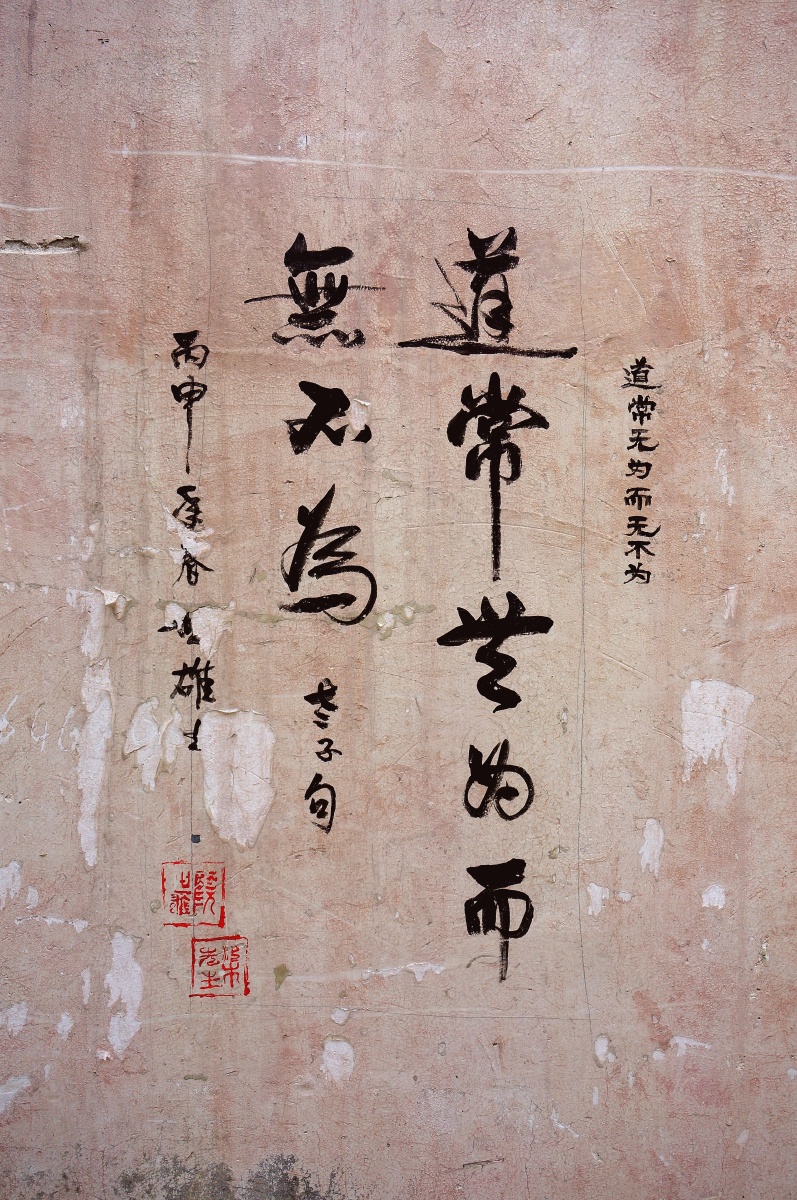 道常无为而无不为
道常無为而
無不為 老子句
丙申 春 雄
先生